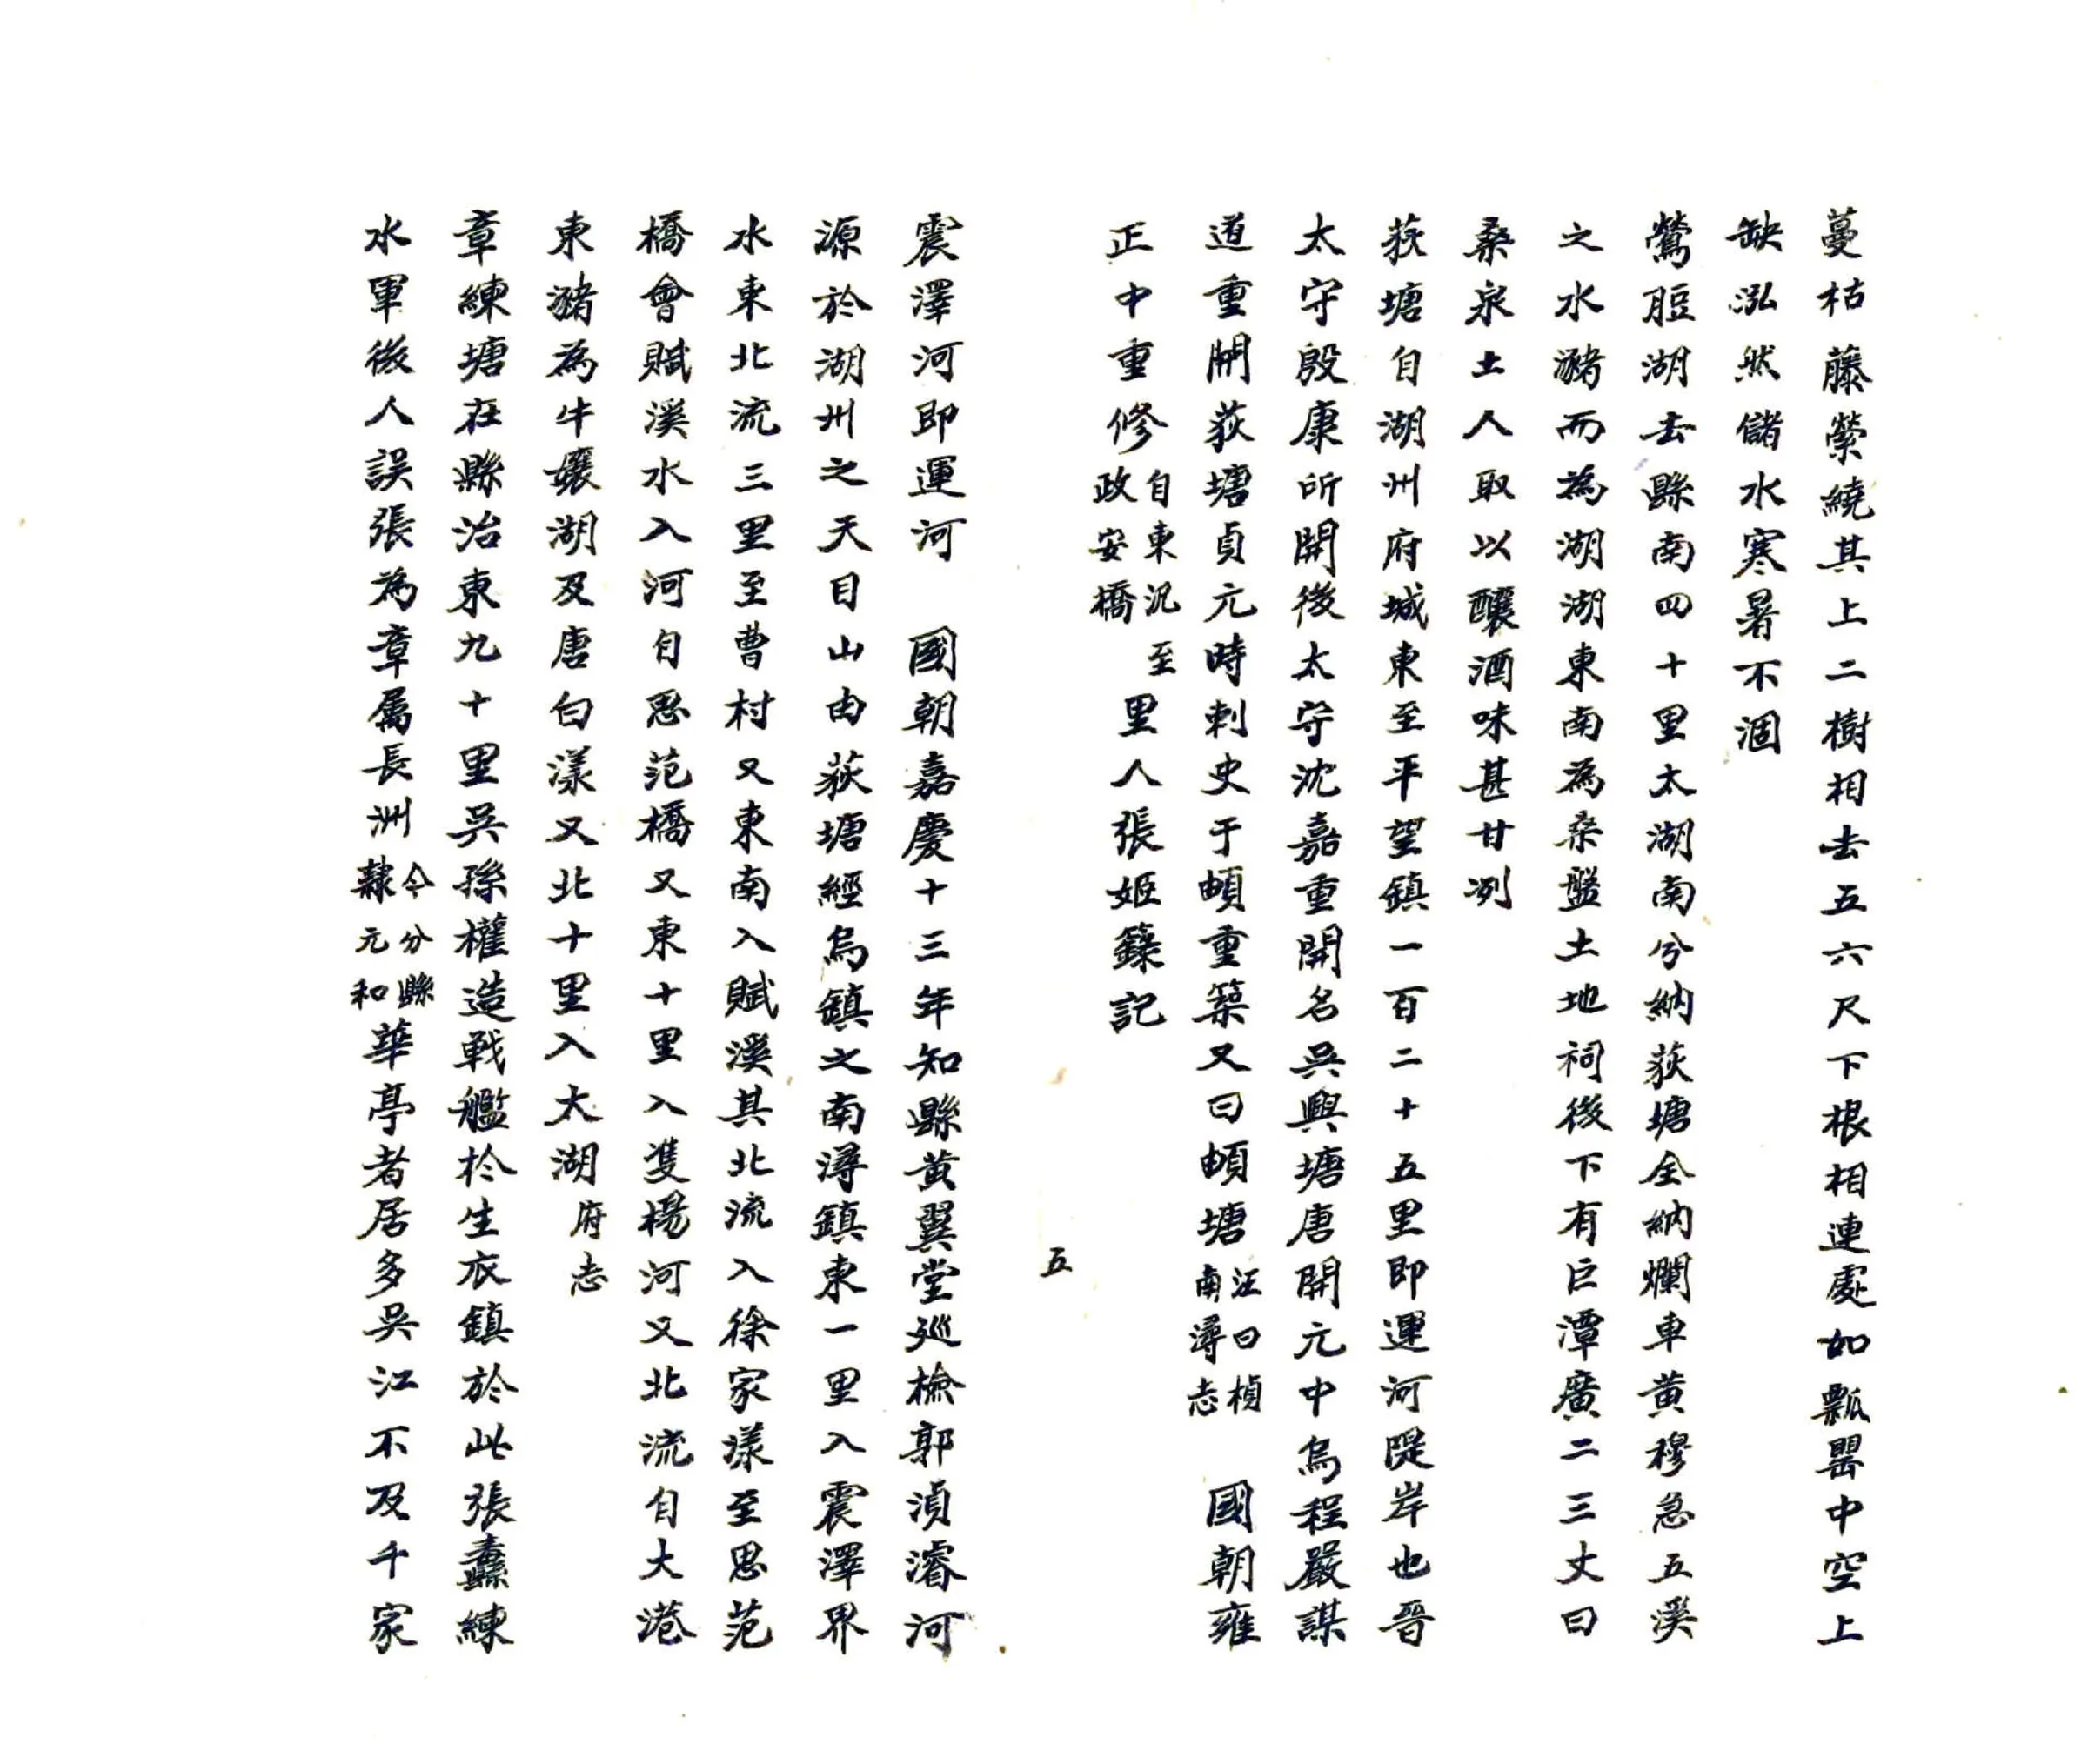 蔓枯藤縈繞其上二樹相去五六尺下根相連處如瓢罌中空上
缺泓然儲水寒暑不涸
鶯脰湖去縣南四十里太湖南兮納荻塘全納爛車黃穆急五溪
之水瀦而為湖湖東南為桑盤土地祠後下有巨潭廣二三丈曰
桑泉土人取以釀酒味甚甘冽
荻塘自湖州府城東至平望鎮一百二十五里即運河隄岸也晉
太守殷康所開後太守沈嘉重開名吳興塘唐開元中烏程嚴謀
道重開荻塘貞元時刺史于頔重築又曰頔塘汪曰楨南潯志 國朝雍
正中重修自東汜至政安橋里人張姬籙記
五
震澤河即運河 國朝嘉慶十三年知縣黃翼堂巡檢郭湞濬河
源於湖州之天目山由荻塘經烏鎮之南潯鎮東一里入震澤界
水東北流三里至曹村又東南入賦溪其北流入徐家漾至思范
橋會賦溪水入河自思范橋又東十里入隻楊河又北流自大港
東瀦為牛孃湖及唐白漾又北十里入太湖府志
章練塘在縣治東九十里吳孫權造戰艦於生衣鎮於此張蠹練
水軍後人誤張為章屬長洲今分縣隸元和華亭者居多吳江不及千家